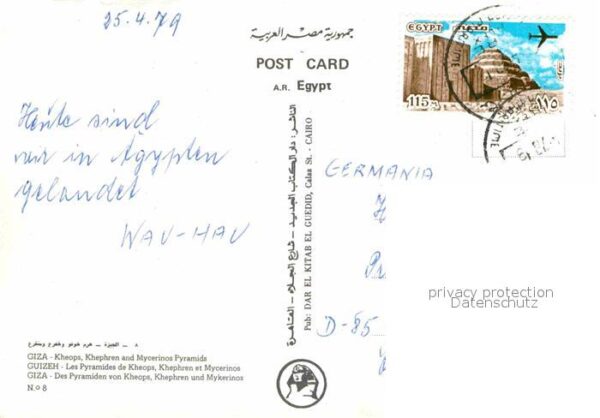 25.4.79
جمهورية مصر العربية
POST CARD
A.R. Egypt
EGYPT مصر
115 M ١١٥
Heute sind
wir in Ägypten
gelandet
WAU-HAU
الناشر: دار الكتاب الجديد – شارع الجلاء – القاهرة
Pub: DAR EL KITAB EL GUEDID, Galaa St. - CAIRO
GERMANIA
D-85
privacy protection
Datenschutz
٨ – الجيزة – هرم خوفو وخفرع ومنقرع
GIZA - Kheops, Khephren and Mycerinos Pyramids
GUIZEH - Les Pyramides de Kheops, Khephren et Mycerinos
GIZA - Des Pyramiden von Kheops, Khephren und Mykerinos
N.o 8